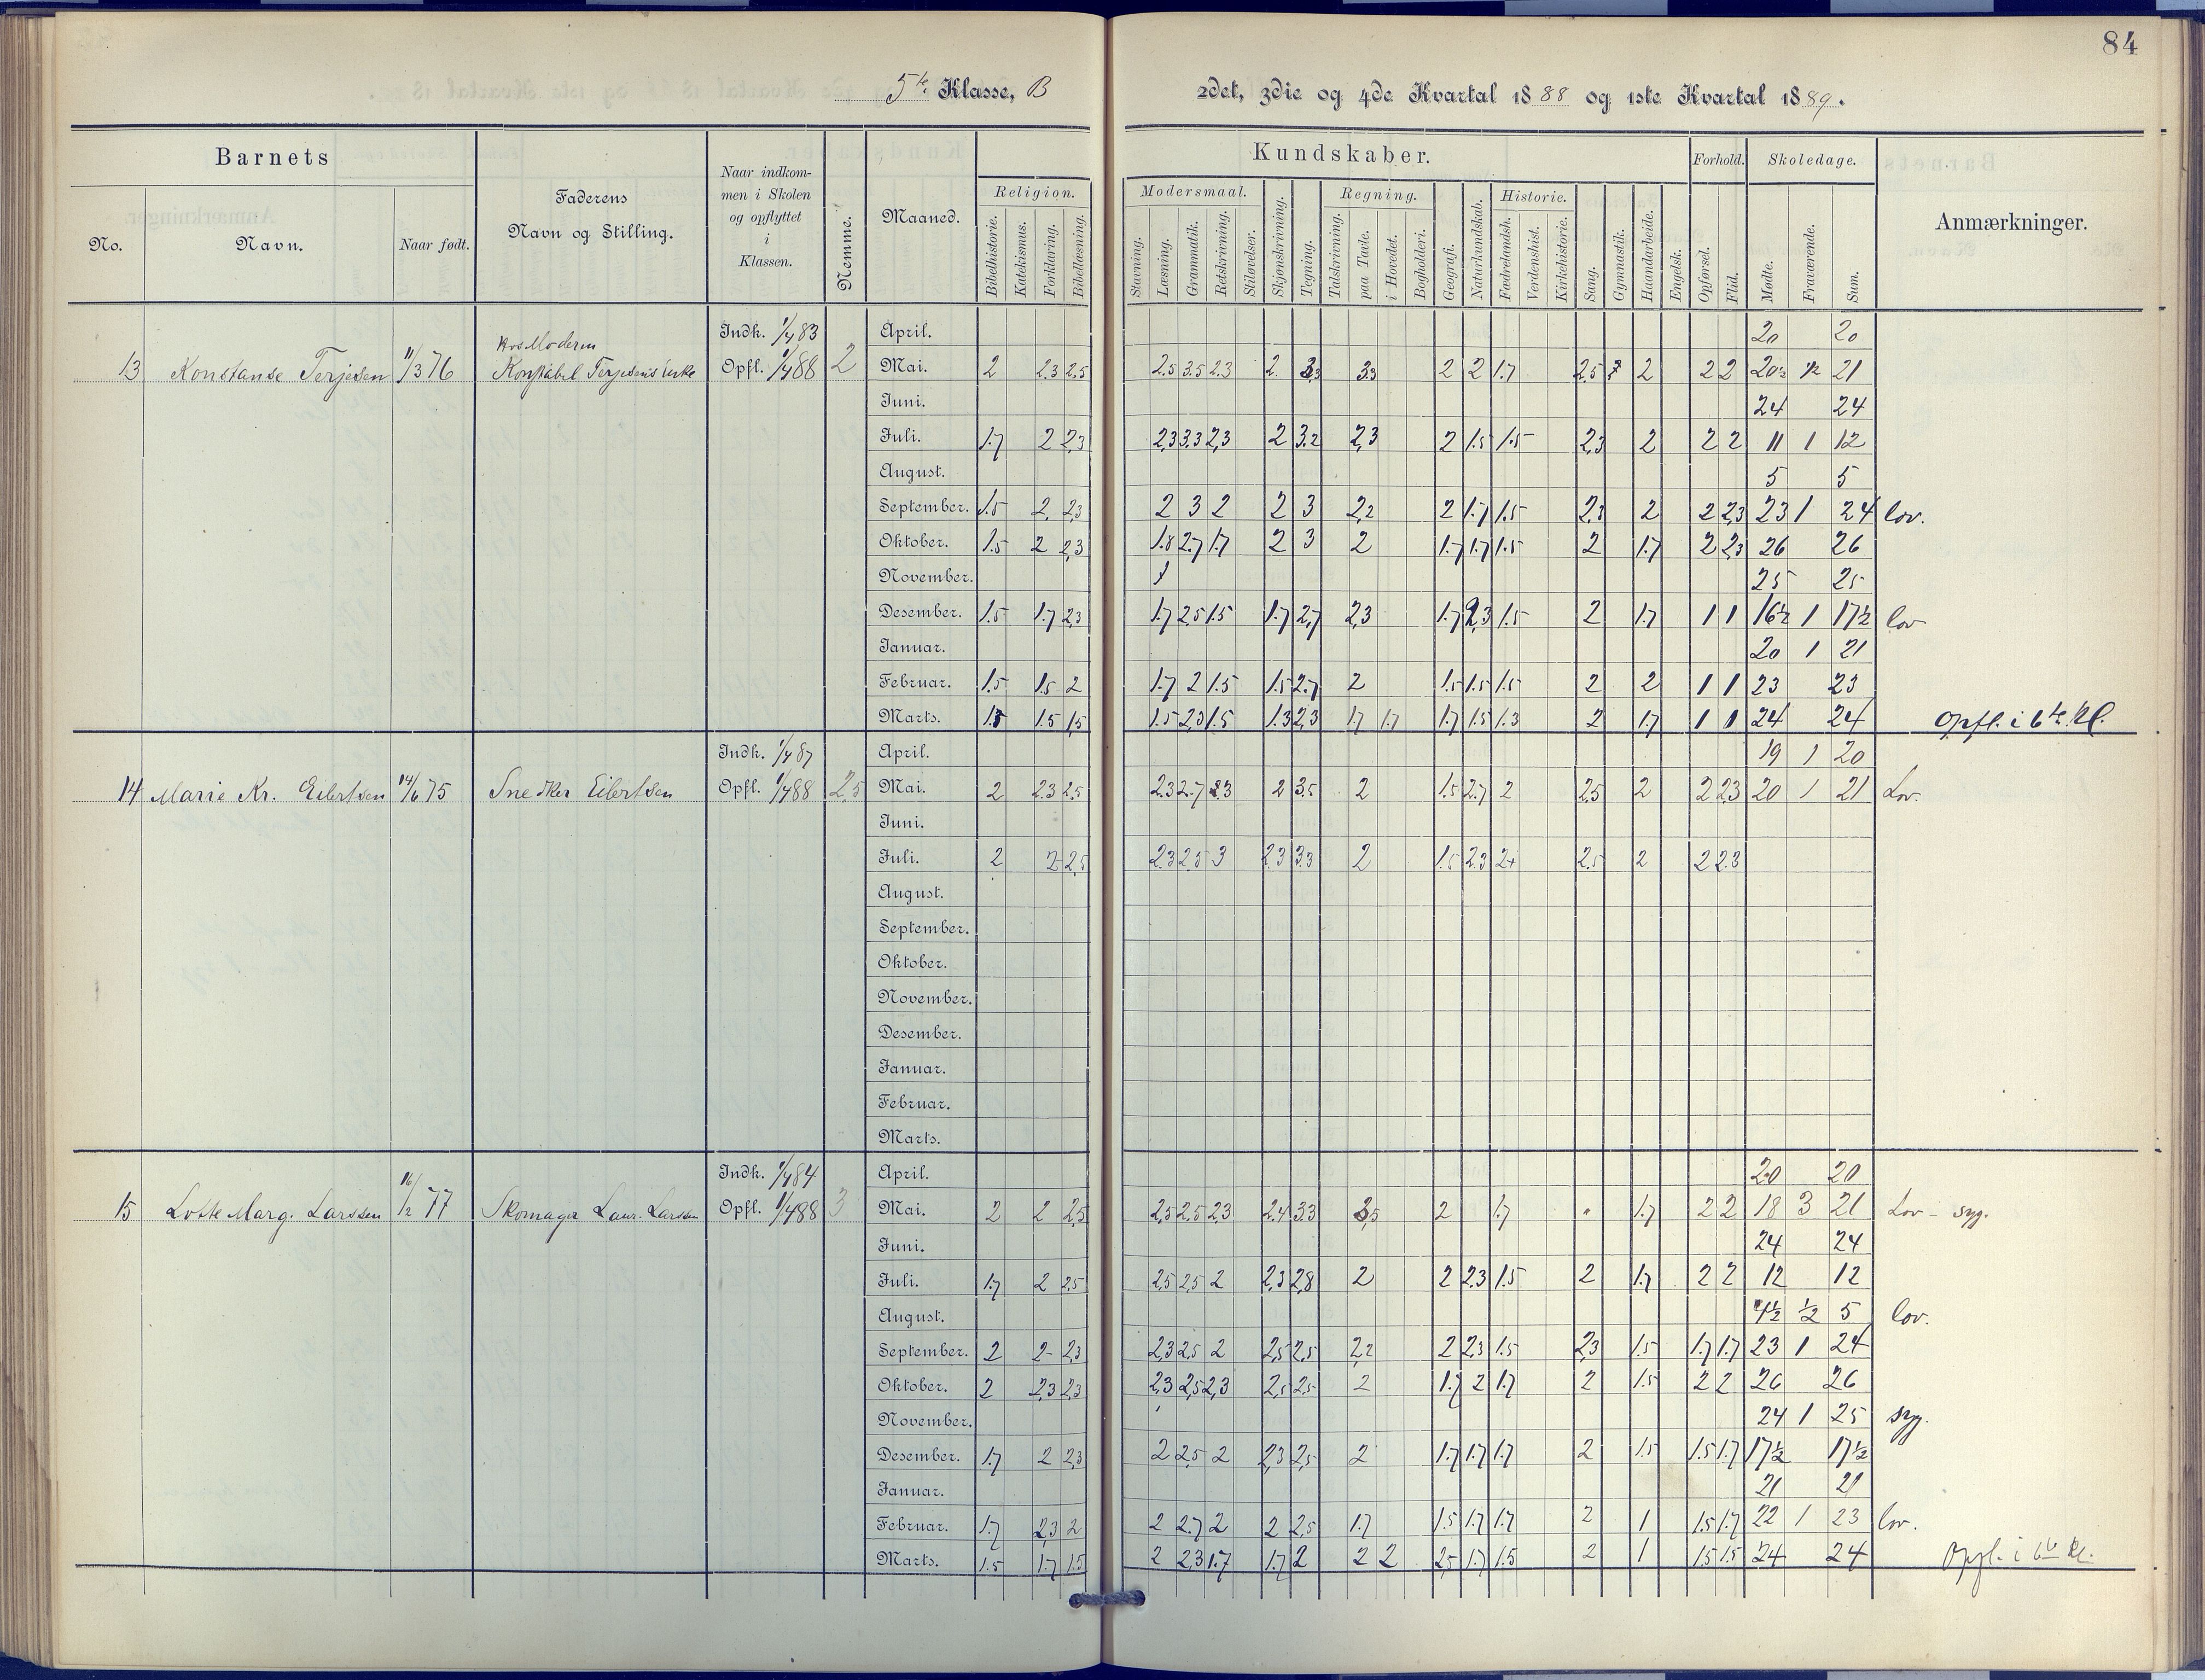 84
5te Klasse, B
2det, 3die og 4de Kvartal 1888 og 1ste Kvartal 1889.
Barnets
No. Navn. Naar født.
Faderens
Navn og Stilling.
Naar indkom-
men i Skolen
og opflyttet
i
Klassen.
Nemme.
Maaned.
Kundskaber.
Religion.
Bibelhistorie. Katekismus. Forklaring. Bibellæsning.
Modersmaal.
Stavning. Læsning. Grammatik. Retskrivning. Stiløvelser.
Skjønskrivning. Tegning.
Regning.
Talskrivning. paa Tavle. i Hovedet. Bogholderi.
Geografi. Naturkundskab.
Historie.
Fædrelandsh. Verdenshist. Kirkehistorie.
Sang. Gymnastik. Haandarbeide. Engelsk.
Forhold.
Opførsel. Flid.
Skoledage.
Mødte. Fraværende. Sum.
Anmærkninger.
13 Konstanse Terjesen 11/3 76
Hos Moderen
Konstabel Terjesens Enke
Indk. 1/4 83
Opfl. 1/4 88 2
April. 20 20
Mai. 2 2.3 2.5 2.5 3.5 2.3 2. 3.3 3.3 2 2 1.7 2.5 2 2 2 20½ ½ 21
Juni. 24 24
Juli. 1.7 2 2.3 2.3 3.3 2.3 2 3.2 2.3 2 1.5 1.5 2.3 2 2 2 11 1 12
August. 5 5
September. 1.5 2. 2.3 2 3 2 2 3 2.2 2 1.7 1.5 2.3 2 2 2.3 23 1 24 lov.
Oktober. 1.5 2 2.3 1.8 2.7 1.7 2 3 2 1.7 1.7 1.5 2 1.7 2 2.3 26 26
November. 25 25
Desember. 1.5 1.7 2.3 1.7 2.5 1.5 1.7 2.7 2.3 1.7 2.3 1.5 2 1.7 1 1 16½ 1 17½ lov
Januar. 20 1 21
Februar. 1.5 1.5 2 1.7 2 1.5 1.5 2.7 2 1.5 1.5 1.5 2 2 1 1 23 23
Marts. 1.5 1.5 1.5 1.5 2.3 1.5 1.3 2.3 1.7 1.7 1.7 1.5 1.3 2 1.7 1 1 24 24 Opfl. i 6te Kl.
14 Marie Kr. Eilertsen 14/6 75
Snedker Eilertsen
Indk. 1/4 87
Opfl. 1/4 88 2.5
April. 19 1 20
Mai. 2 2.3 2.5 2.3 2.7 2.3 2 3.5 2 1.5 2.7 2 2.5 2 2 2.3 20 1 21 Lov.
Juni.
Juli. 2 2 2.5 2.3 2.5 3 2.3 3.3 2 1.5 2.3 2+ 2.5 2 2 2.3
August.
September.
Oktober.
November.
Desember.
Januar.
Februar.
Marts.
15 Lotte Marg. Larssen 16/2 77
Skomager Laur. Larssen
Indk. 1/4 84
Opfl. 1/4 88 3
April. 20 20
Mai. 2 2 2.5 2.5 2.5 2.3 2.4 3.3 3.5 2 1.7 " 1.7 2 2 18 3 21 Lov - syg.
Juni. 24 24
Juli. 1.7 2 2.5 2.5 2.5 2 2.3 2.8 2 2 2.3 1.5 2 1.7 2 2 12 12
August. 4½ ½ 5 lov.
September. 2 2 2.3 2.3 2.5 2 2.5 2.5 2.2 2 2.3 1.5 2.3 1.5 1.7 1.7 23 1 24
Oktober. 2 2.3 2.3 2.3 2.5 2.3 2.5 2.5 2 1.7 2 1.7 2 1.5 2 2 26 26
November. 24 1 25 syg.
Desember. 1.7 2 2.3 2 2.5 2 2.3 2.5 2 1.7 1.7 1.7 2 1.5 1.5 1.7 17½ 17½
Januar. 21 21
Februar. 1.7 2.3 2 2 2.7 2 2 2.5 1.7 1.5 1.7 1.7 2 1 1.5 1.7 22 1 23 lov.
Marts. 1.5 1.7 1.5 2 2.3 1.7 1.7 2 2 2 2.5 1.7 1.5 2 1 1.5 1.5 24 24 Opfl. i 6te Kl.